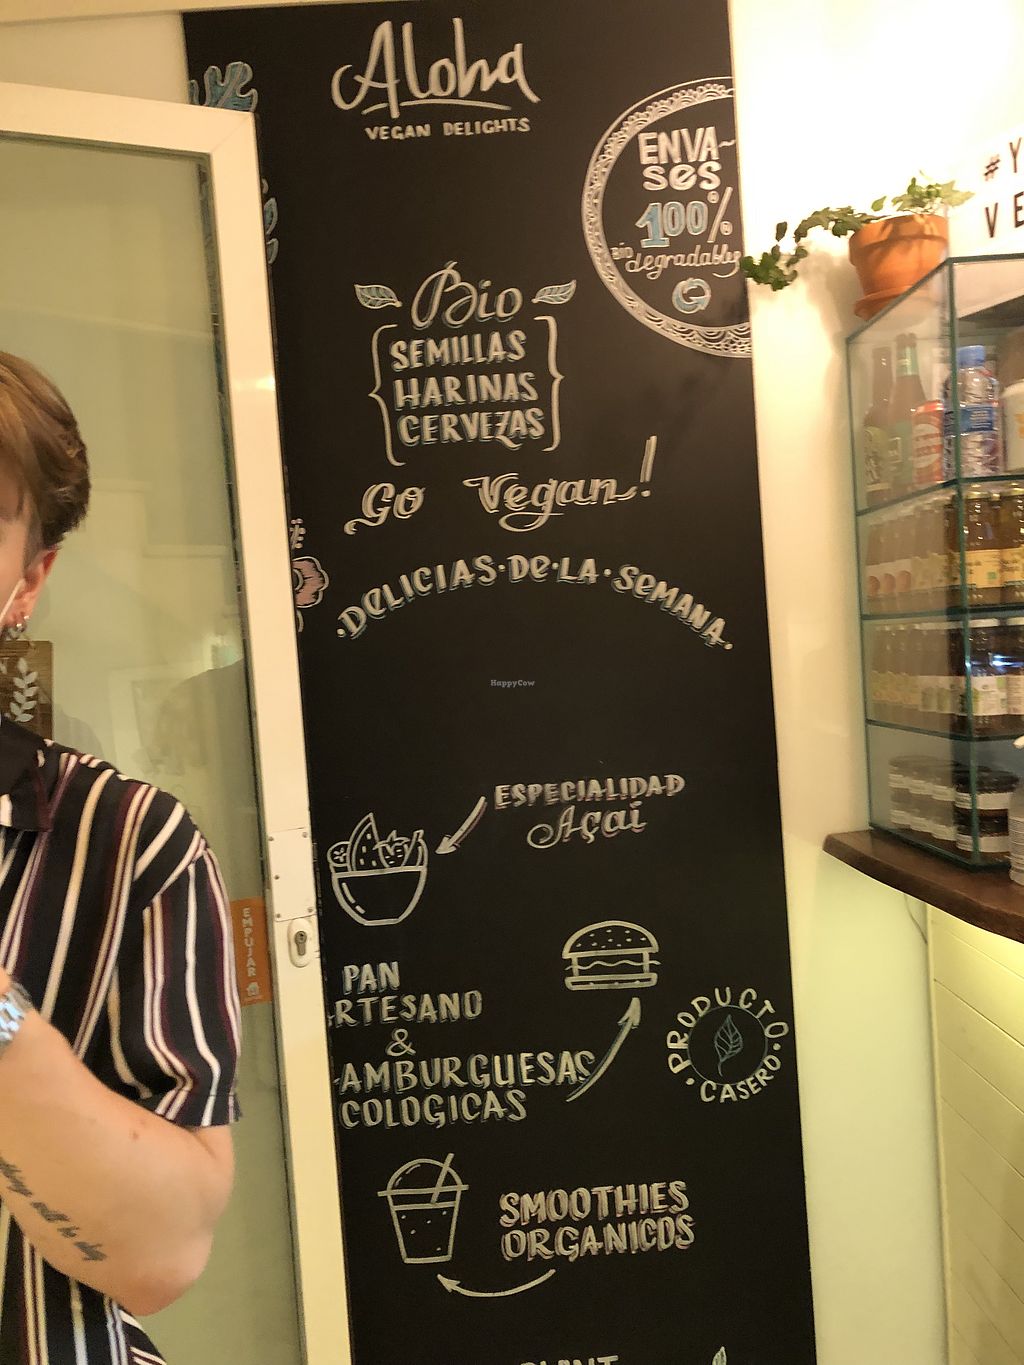 Aloha
VEGAN DELIGHTS
ENVA-
SES
100%
BIO
degradables
Bio
SEMILLAS
HARINAS
CERVEZAS
Go Vegan!
·DELICIAS·DE·LA·SEMANA·
HappyCow
ESPECIALIDAD
Açai
PAN
RTESANO
&
AMBURGUESAS
COLOGICAS
·PRODUCTO·
CASERO
SMOOTHIES
ORGANICOS
EMPUJAR
#Y
VE